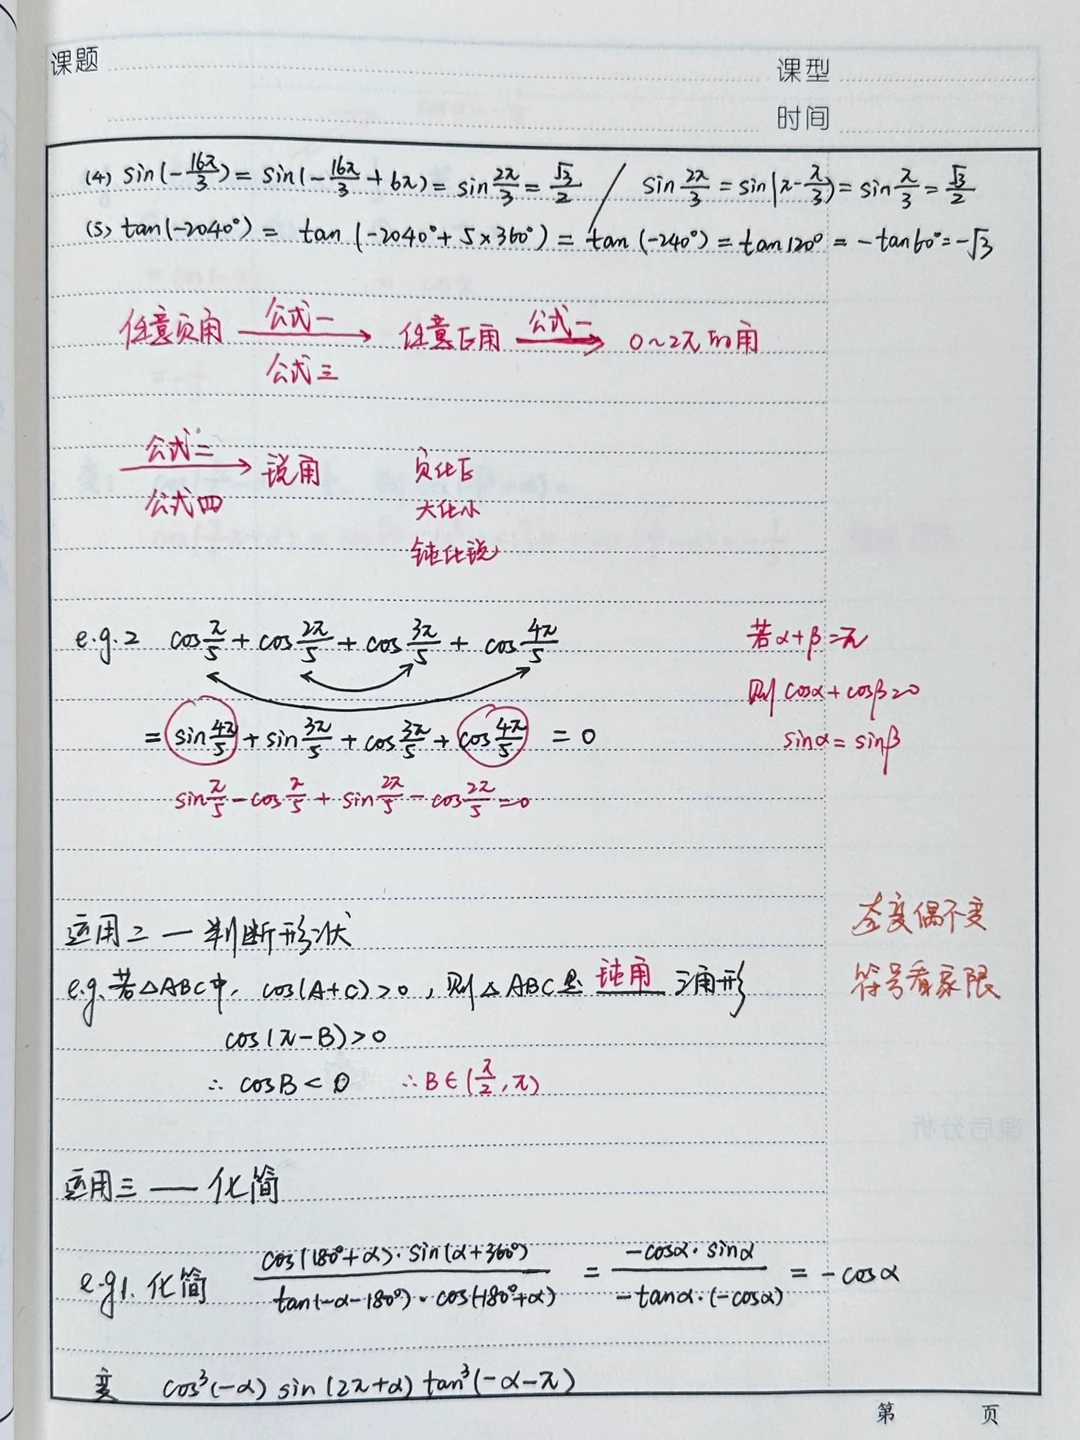 课题
课型
时间
(4) sin(-16π/3) = sin(-16π/3 + 6π) = sin 2π/3 = √3/2 / sin 2π/3 = sin(π - π/3) = sin π/3 = √3/2
(5) tan(-2040°) = tan(-2040° + 5×360°) = tan(-240°) = tan120° = -tan60° = -√3
任意负角 公式一 公式三 → 任意正角 公式一 → 0~2π的角
公式二 公式四 → 锐角 负化正
大化小
钝化锐
e.g.2 cos π/5 + cos 2π/5 + cos 3π/5 + cos 4π/5
若α+β=π
则 cosα + cosβ=0
= sin 4π/5 + sin 3π/5 + cos 3π/5 + cos 4π/5 = 0
sinα = sinβ
sin π/5 - cos π/5 + sin 2π/5 - cos 2π/5 = 0
运用二 — 判断形状
奇变偶不变
e.g. 若△ABC中, cos(A+C)>0, 则△ABC是 钝角 三角形
符号看象限
cos(π-B)>0
∴ cosB < 0 ∴B∈(π/2, π)
运用三 — 化简
e.g1. 化简 cos(180°+α)·sin(α+360°) / tan(-α-180°)·cos(-180°+α) = -cosα·sinα / -tanα·(-cosα) = -cosα
变 cos³(-α) sin(2π+α) tan³(-α-π)
第 页